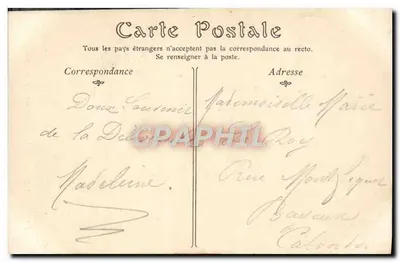 Carte Postale
Tous les pays étrangers n'acceptent pas la correspondance au recto.
Se renseigner à la poste.
Correspondance
Adresse
Doux Souvenir
de la
Madeleine.
CPAPHIL
Mademoiselle Marie
Roy
Bayeux
Calvados